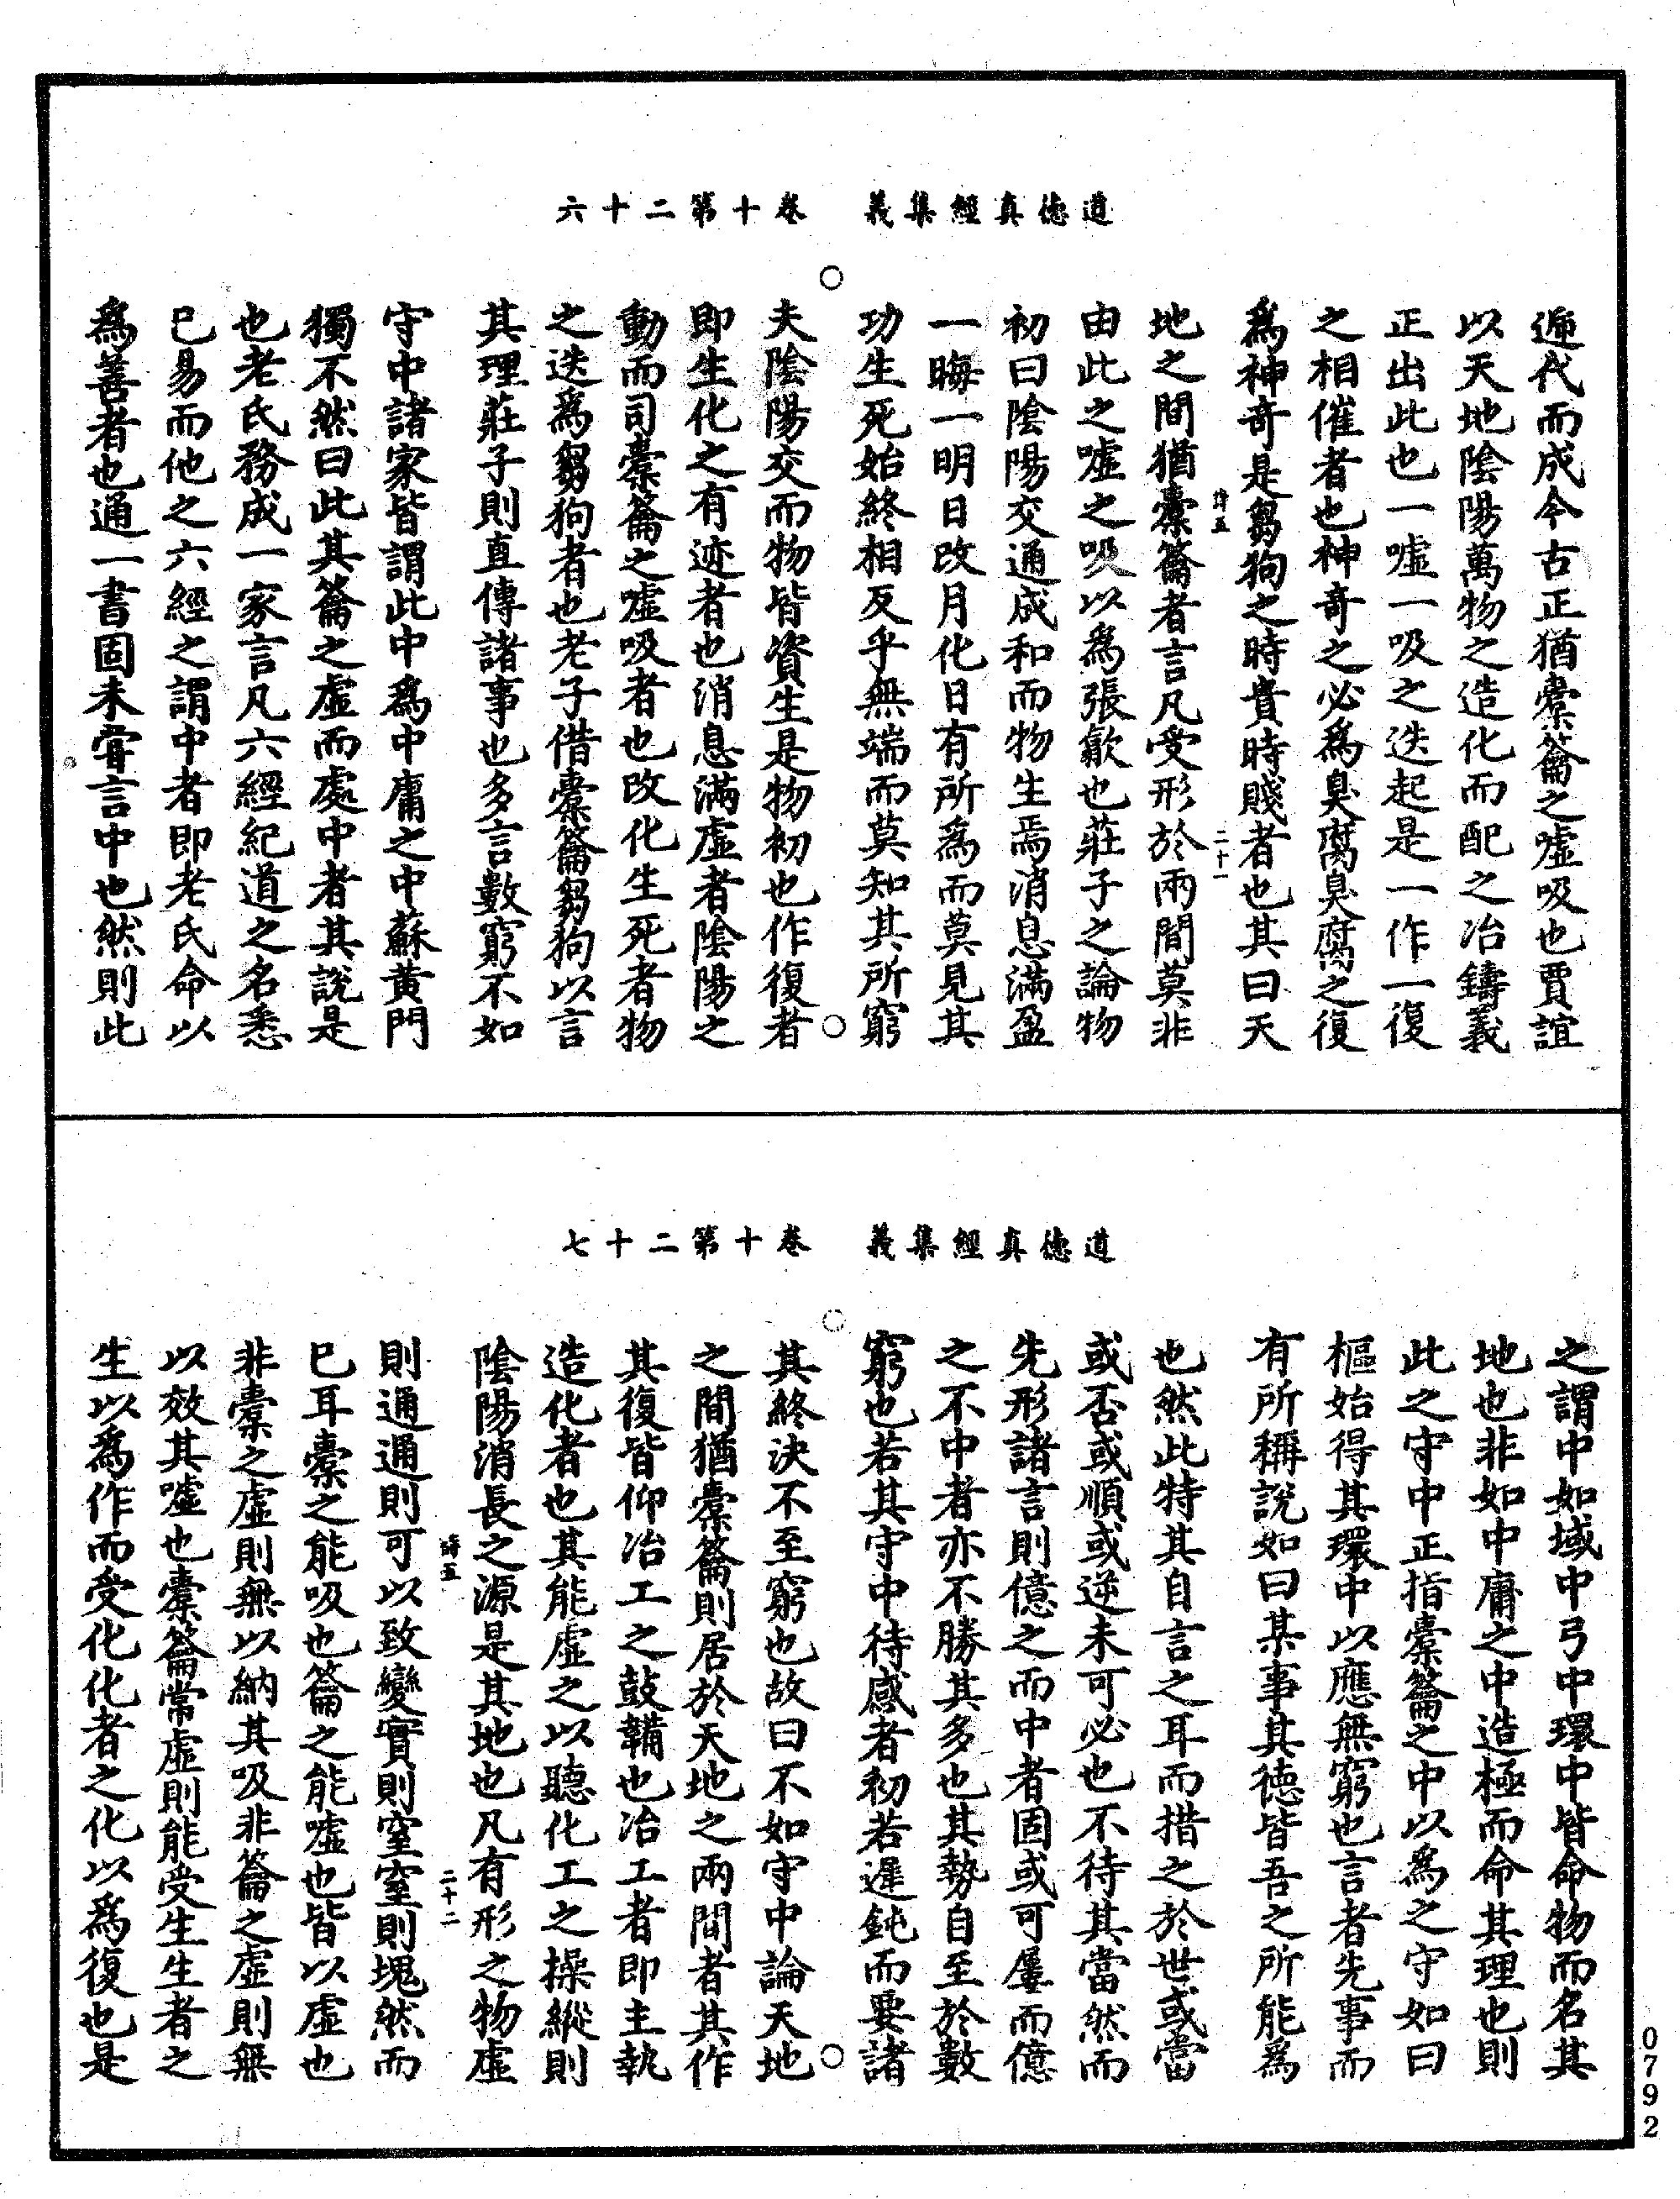 道德真經集義　卷十第二十六
遞代而成今古正猶橐籥之噓吸也賈誼
以天地陰陽萬物之造化而配之冶鑄義
正出此也一噓一吸之迭起是一作一復
之相催者也神奇之必為臭腐臭腐之復
為神奇是芻狗之時貴時賤者也其曰天
詩五　二十一
地之間猶橐籥者言凡受形於兩間莫非
由此之噓之吸以為張歙也莊子之論物
初曰陰陽交通成和而物生焉消息滿盈
一晦一明日改月化日有所為而莫見其
功生死始終相反乎無端而莫知其所窮
夫陰陽交而物皆資生是物初也作復者
即生化之有迹者也消息滿虛者陰陽之
動而司橐籥之噓吸者也改化生死者物
之迭為芻狗者也老子借橐籥芻狗以言
其理莊子則直傳諸事也多言數窮不如
守中諸家皆謂此中為中庸之中蘇黃門
獨不然曰此其籥之虛而處中者其說是
也老氏務成一家言凡六經紀道之名悉
已易而他之六經之謂中者即老氏命以
為善者也通一書固未嘗言中也然則此
道德真經集義　卷十第二十七
之謂中如域中弓中環中皆命物而名其
地也非如中庸之中造極而命其理也則
此之守中正指橐籥之中以為之守如曰
樞始得其環中以應無窮也言者先事而
有所稱說如曰某事其德皆吾之所能為
也然此特其自言之耳而措之於世或當
或否或順或逆未可必也不待其當然而
先形諸言則億之而中者固或可屢而億
之不中者亦不勝其多也其勢自至於數
窮也若其守中待感者初若遲鈍而要諸
其終決不至窮也故曰不如守中論天地
之間猶橐籥則居於天地之兩間者其作
其復皆仰冶工之鼓鞴也冶工者即主執
造化者也其能虛之以聽化工之操縱則
陰陽消長之源是其地也凡有形之物虛
詩五　二十二
則通通則可以致變實則窒窒則塊然而
已耳橐之能吸也籥之能噓也皆以虛也
非橐之虛則無以納其吸非籥之虛則無
以效其噓也橐籥常虛則能受生生者之
生以為作而受化化者之化以為復也是
0792